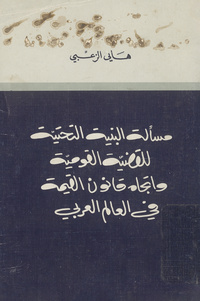 هاني الزعبي
مسألة البنية التحتية
للقضية القومية
واتجاه قانون القيمة
في العالم العربي